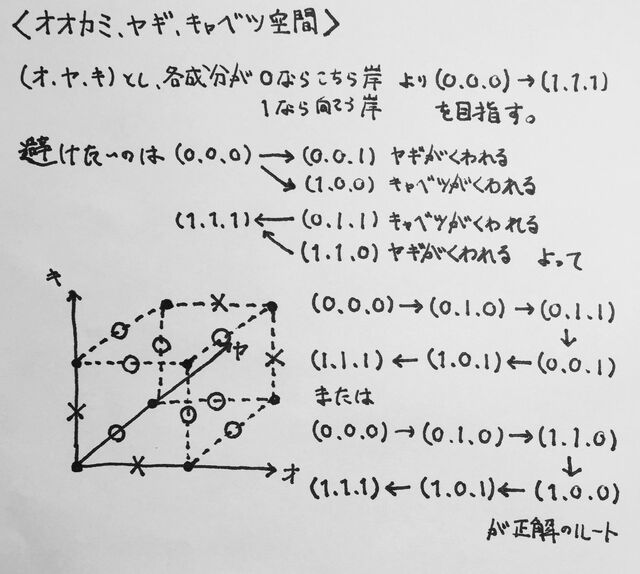 〈オオカミ、ヤギ、キャベツ空間〉
(オ.ヤ.キ)とし、各成分が0ならこちら岸 より(0.0.0)→(1.1.1)
1なら向こう岸 を目指す。
避けたいのは (0.0.0) → (0.0.1) ヤギがくわれる
↘ (1.0.0) キャベツがくわれる
(1.1.1) ← (0.1.1) キャベツがくわれる
↖ (1.1.0) ヤギがくわれる よって
キ
ヤ
オ
(0.0.0)→(0.1.0)→(0.1.1)
↓
(1.1.1)←(1.0.1)←(0.0.1)
または
(0.0.0)→(0.1.0)→(1.1.0)
↓
(1.1.1)←(1.0.1)←(1.0.0)
が正解のルート